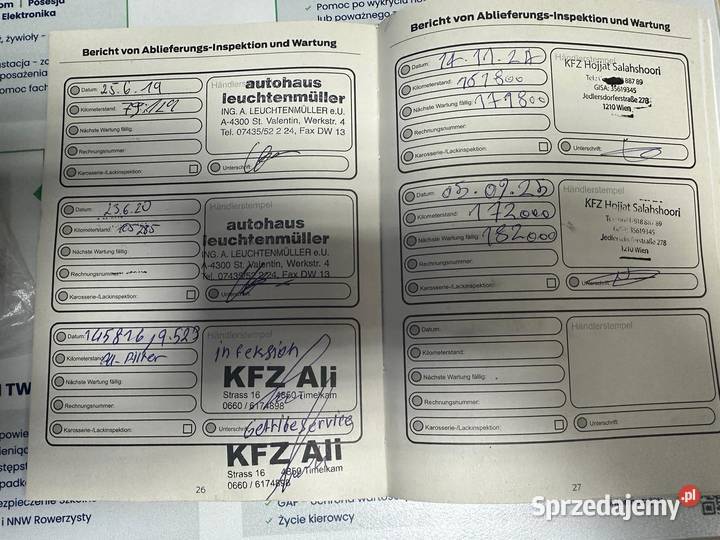 om | Posesja
Elektronika
Bericht von Ablieferungs-Inspektion und Wartung
Datum: 25.6.19
Kilometerstand:
Nächste Wartung fällig:
Rechnungsnummer:
Karosserie-/Lackinspektion:
Händlerstempel
autohaus
leuchtenmüller
ING. A. LEUCHTENMÜLLER e.U.
A-4300 St. Valentin, Werkstr. 4
Tel. 07435/52 2 24, Fax DW 13
Unterschrift:
Datum: 23.6.20
Kilometerstand: 105285
Nächste Wartung fällig:
Rechnungsnummer:
Karosserie-/Lackinspektion:
Händlerstempel
autohaus
leuchtenmüller
ING. A. LEUCHTENMÜLLER e.U.
A-4300 St. Valentin, Werkstr. 4
Tel. 07435/52 2 24, Fax DW 13
Unterschrift:
Datum: 145816, 9.523
Kilometerstand:
Nächste Wartung fällig:
Rechnungsnummer:
Karosserie-/Lackinspektion:
Händlerstempel
KFZ Ali
Strass 16 4850 Timelkam
0660 / 6174898
Unterschrift:
Getriebeservice
KFZ Ali
Strass 16 4850 Timelkam
0660 / 6174898
26
Pomoc po wykryciu
lub poważnego
Bericht von Ablieferungs-Inspektion und Wartung
Datum:
Kilometerstand: 161800
Nächste Wartung fällig: 171800
Rechnungsnummer:
Karosserie-/Lackinspektion:
Händlerstempel
KFZ Hojjat Salahshoori
887 89
GISA: 35619345
Jedlersdorferstraße 278
1210 Wien
Unterschrift:
Datum: 05.09.25
Kilometerstand: 172000
Nächste Wartung fällig: 182000
Rechnungsnummer:
Karosserie-/Lackinspektion:
Händlerstempel
KFZ Hojjat Salahshoori
35619345
Jedlersdorferstraße 278
1210 Wien
Unterschrift:
Datum:
Kilometerstand:
Nächste Wartung fällig:
Rechnungsnummer:
Karosserie-/Lackinspektion:
Händlerstempel
Unterschrift:
27
i NNW Rowerzysty
Życie kierowcy
Sprzedajemy.pl